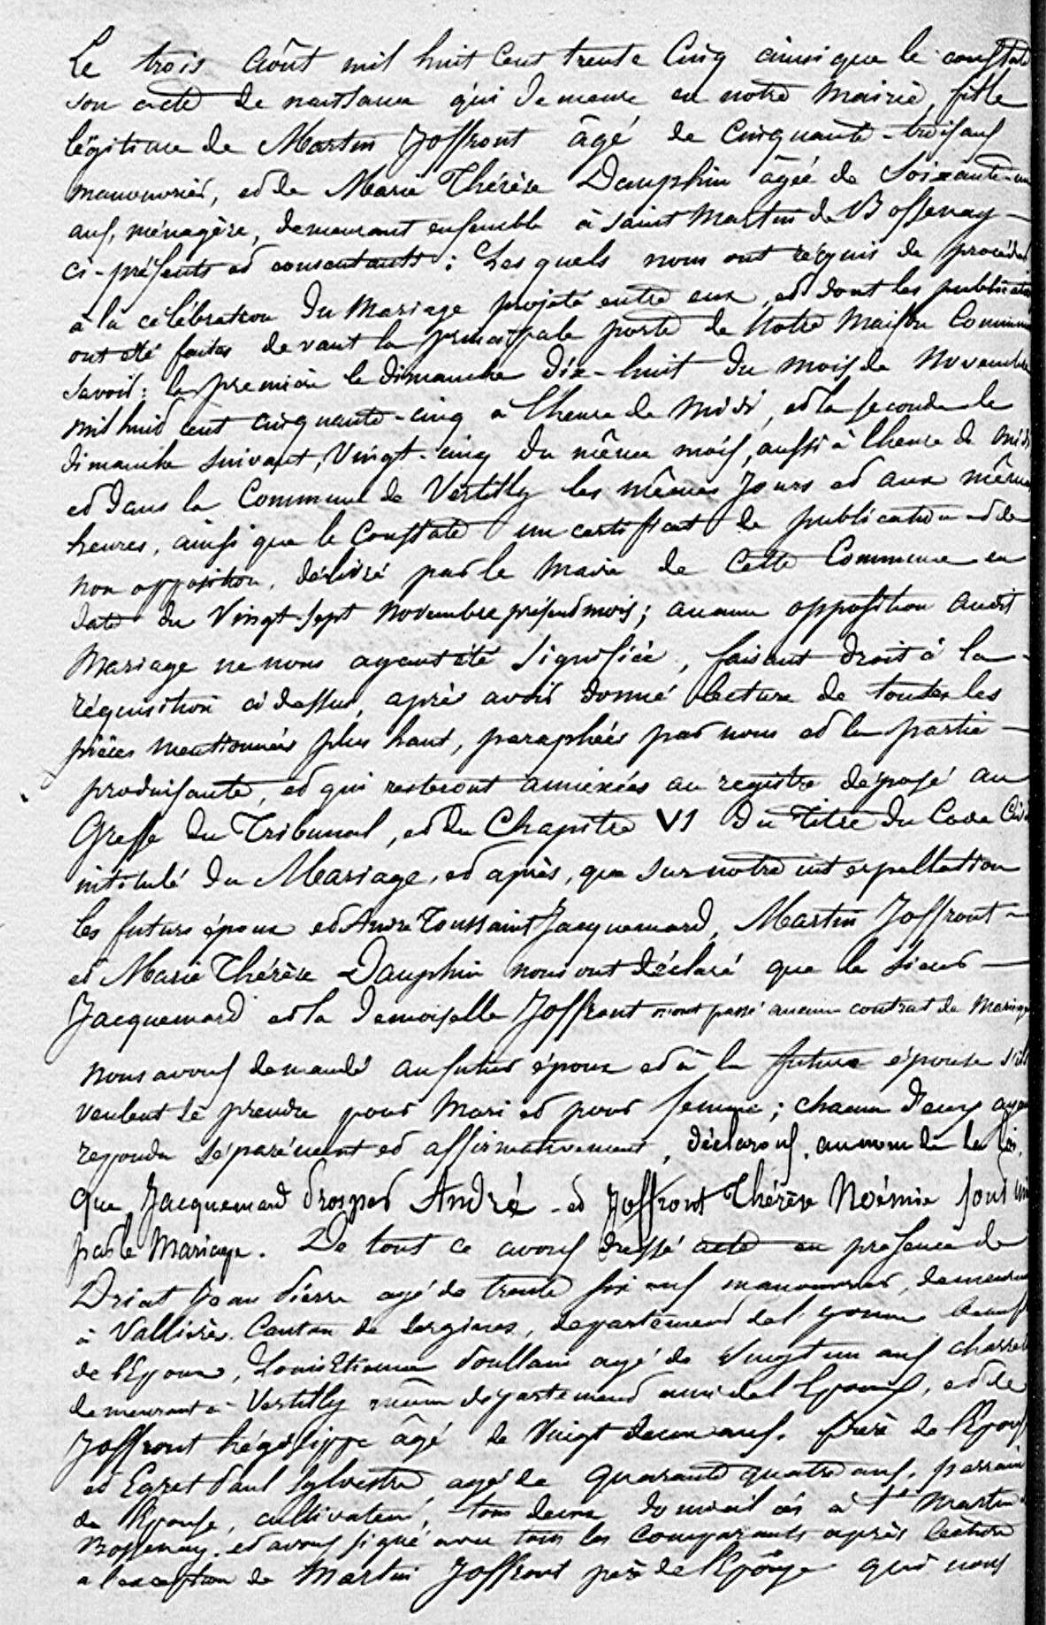 Le trois Août mil huit Cent trente Cinq ainsi que le constate
son acte de naissance qui demeure en notre Mairie, fille
légitime de Martin Joffront âgé de Cinquante-trois ans
manouvrier, et de Marie Thérèse Dauphin âgée de Soixante-un
ans, ménagère, demeurant ensemble à Saint Martin de Bossenay —
ci-présents et consentants : Lesquels nous ont requis de procéder
à la célébration du Mariage projeté entre eux, et dont les publications
ont été faites devant la principale porte de Notre Maison Commune
Savoir : la première le dimanche dix-huit du mois de Novembre
mil huit cent cinquante-cinq à l'heure de Midi, et la seconde le
dimanche suivant, Vingt-cinq du même mois, aussi à l'heure de midi
et dans la Commune de Vertilly les mêmes Jours et aux mêmes
heures, ainsi que le Constate un certificat de publication et de
non opposition, délivré par le Maire de Cette Commune en
date du Vingt-Sept Novembre présent mois ; aucune opposition audit
Mariage ne nous ayant été Signifiée, faisant droit à la —
réquisition ci dessus, après avoir donné lecture de toutes les
pièces mentionnées plus haut, paraphées par nous et la partie —
produisante, et qui resteront annexées au registre déposé au
Greffe du Tribunal, et du Chapitre VI du Titre du Code Civil
intitulé du Mariage, et après, que sur notre interpellation
les futurs époux et André Toussaint Jacquemard, Martin Joffront —
et Marie Thérèse Dauphin nous ont déclaré que le Sieur —
Jacquemard et la Demoiselle Joffront n'ont passé aucun contrat de Mariage
Nous avons demandé au futur époux et à la future épouse s'ils
veulent se prendre pour Mari et pour femme ; chacun d'eux ayant
répondu Séparément et affirmativement, déclarons, au nom de la loi,
que Jacquemard Prosper André et Joffront Thérèse Noémie sont unis
par le Mariage. De tout ce avons dressé acte en présence de
Driat Jean Pierre agé de trente six ans manouvrier, demeurant
à Vallières Canton de Sergines, département de l'yonne
de l'Epoux, Louis Etienne Poullain agé de Vingt un ans charretier
demeurant à Vertilly même département ami de l'Epoux, et de
Joffront hégésippe âgé de Vingt deux ans, frère de l'Epouse
et Egret Paul Sylvestre agé de quarante quatre ans, parrain
de l'Epouse, cultivateur, tous deux domiciliés à St Martin de
Bossenay, et avons signé avec tous les comparants après lecture
à l'exception de Martin Joffront père de l'Epouse qui nous